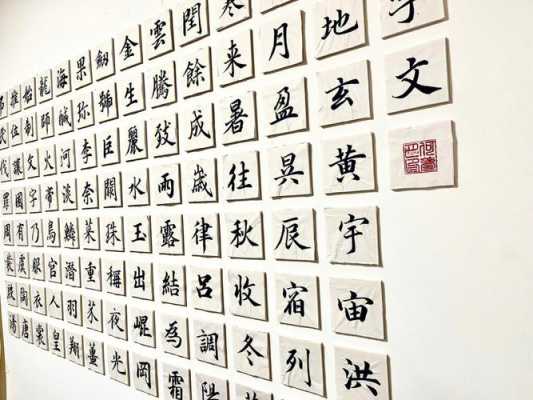 字文
地玄黄宇宙洪
月盈昃辰宿列
寒来暑往秋收冬
閏餘成歲律呂調陽
雲騰致雨露結為霜
金生麗水玉出崐岡
劔號巨闕珠稱夜光
果珎李奈菜重芥薑
海鹹河淡鱗潛羽翔
龍師火帝鳥官人皇
始制文字乃服衣裳
推位讓國有虞陶唐
民伐罪周發殷湯